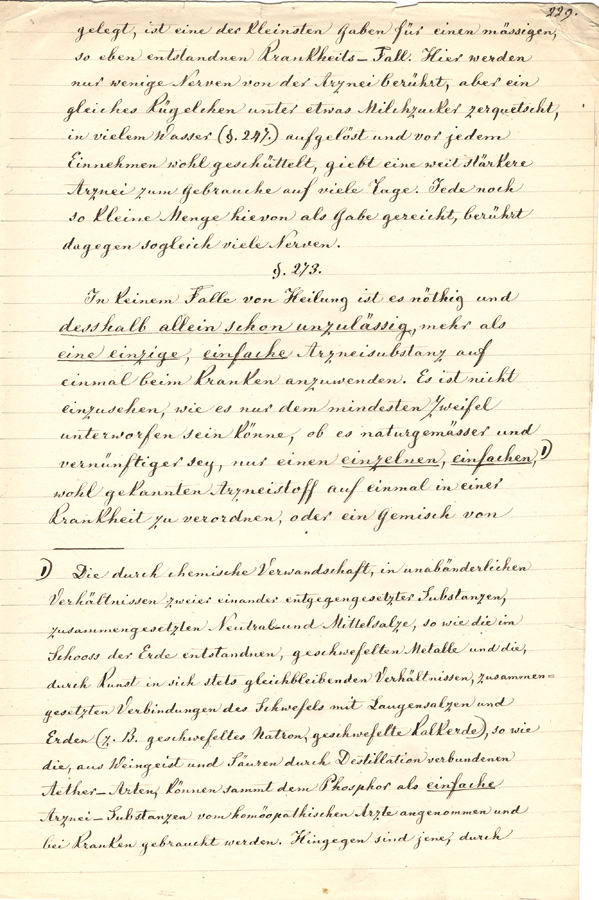 229.
gelegt, ist eine der kleinsten Gaben für einen mässigen,
so eben entstandnen Krankheits-Fall. Hier werden
nur wenige Nerven von der Arznei berührt, aber ein
gleiches Kügelchen unter etwas Milchzucker zerquetscht,
in vielem Wasser (§. 247.) aufgelöst und vor jedem
Einnehmen wohl geschüttelt, giebt eine weit stärkere
Arznei zum Gebrauche auf viele Tage. Jede noch
so kleine Menge hievon als Gabe gereicht, berührt
dagegen sogleich viele Nerven.
§. 273.
In keinem Falle von Heilung ist es nöthig und
desshalb allein schon unzulässig, mehr als
eine einzige, einfache Arzneisubstanz auf
einmal beim Kranken anzuwenden. Es ist nicht
einzusehen, wie es nur dem mindesten Zweifel
unterworfen sein könne, ob es naturgemässer und
vernünftiger sey, nur einen einzelnen, einfachen, 1)
wohl gekannten Arzneistoff auf einmal in einer
Krankheit zu verordnen, oder ein Gemisch von
1) Die durch chemische Verwandschaft, in unabänderlichen
Verhältnissen zweier einander entgegengesetzter Substanzen,
zusammengesetzten Neutral- und Mittelsalze, so wie die im
Schooss der Erde entstandnen, geschwefelten Metalle und die,
durch Kunst in sich stets gleichbleibenden Verhältnissen, zusammen=
gesetzten Verbindungen des Schwefels mit Laugensalzen und
Erden (z. B. geschwefeltes Natron, geschwefelte Kalkerde), so wie
die, aus Weingeist und Säuren durch Destillation verbundenen
Aether-Arten, können sammt dem Phosphor als einfache
Arznei-Substanzen vom homöopathischen Arzte angenommen und
bei Kranken gebraucht werden. Hingegen sind jene, durch